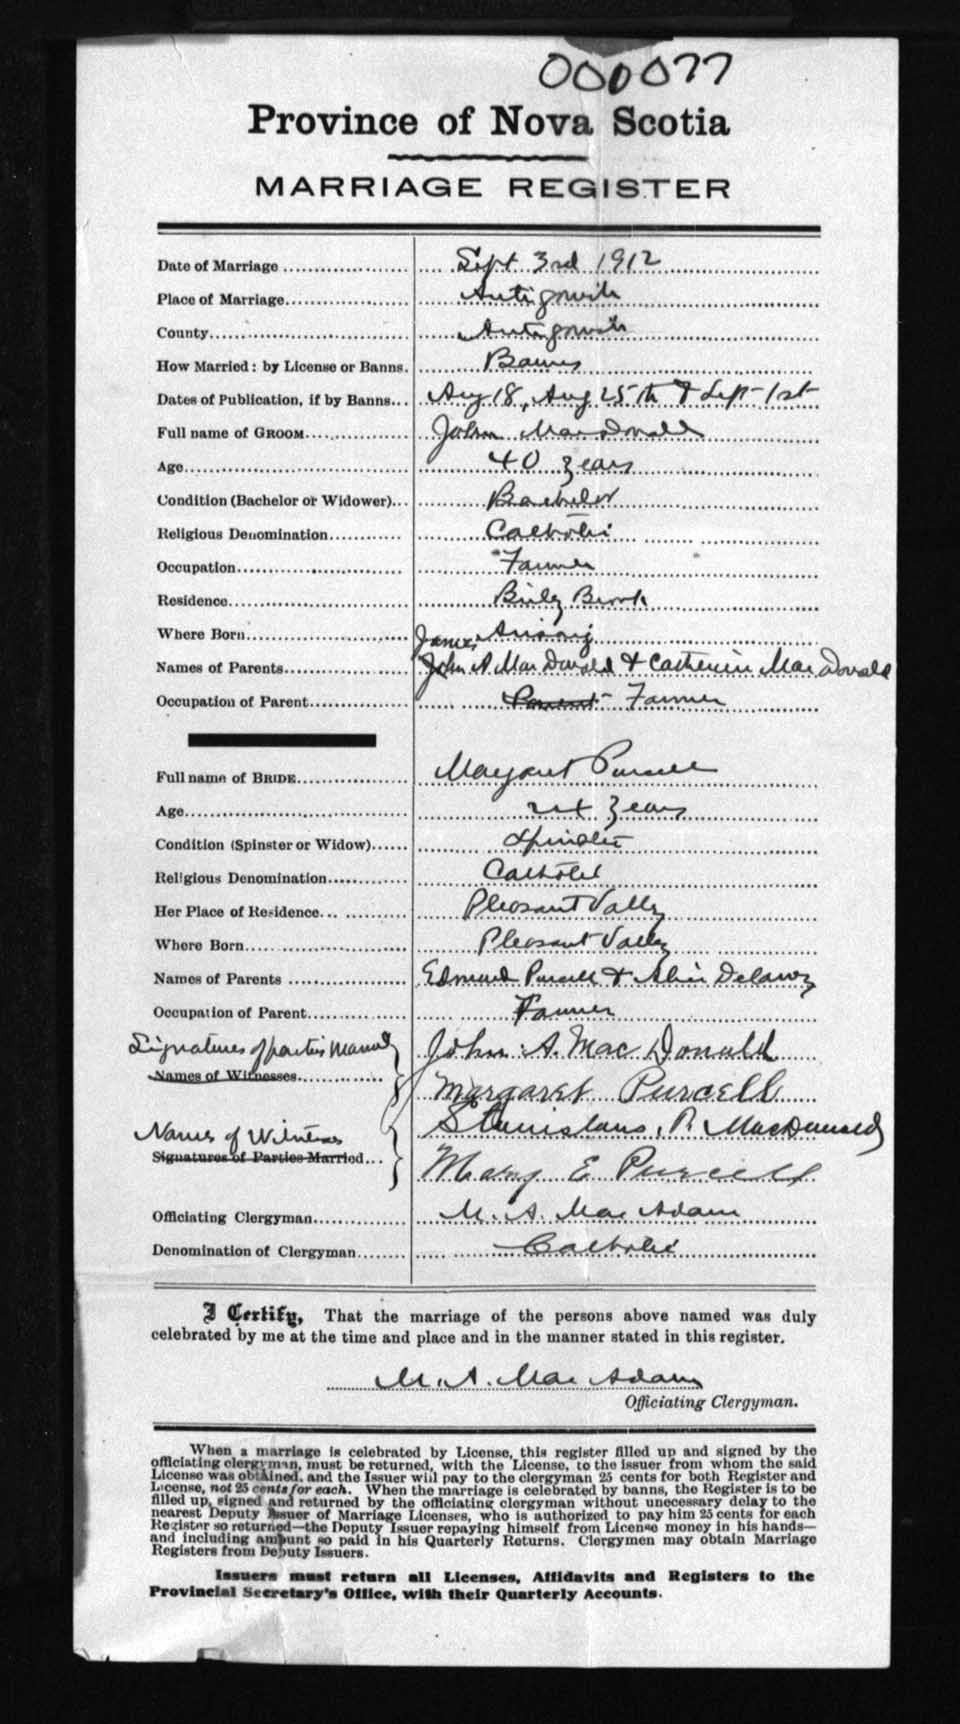 000077
Province of Nova Scotia
MARRIAGE REGISTER
Date of Marriage Sept 3rd 1912
Place of Marriage Antigonish
County Antigonish
How Married: by License or Banns. Banns
Dates of Publication, if by Banns Aug 18, Aug 25th & Sept 1st
Full name of GROOM John MacDonald
Age 40 years
Condition (Bachelor or Widower) Bachelor
Religious Denomination Catholic
Occupation Farmer
Residence Brook
Where Born Arisaig
James
Names of Parents John A. MacDonald & Catherine MacDonald
Occupation of Parent Parent - Farmer
Full name of BRIDE Margaret Purcell
Age 24 years
Condition (Spinster or Widow) Spinster
Religious Denomination Catholic
Her Place of Residence Pleasant Valley
Where Born Pleasant Valley
Names of Parents Edmund Purcell & Delaney
Occupation of Parent Farmer
Signatures of parties married John A. MacDonald
Names of Witnesses Margaret Purcell
Names of Witnesses Stanislaus R. MacDonald
Signatures of Parties Married Mary E Purcell
Officiating Clergyman M. A. MacAdam
Denomination of Clergyman Catholic
I Certify, That the marriage of the persons above named was duly
celebrated by me at the time and place and in the manner stated in this register.
M. A. MacAdam
Officiating Clergyman.
When a marriage is celebrated by License, this register filled up and signed by the
officiating clergyman, must be returned, with the License, to the issuer from whom the said
License was obtained, and the Issuer will pay to the clergyman 25 cents for both Register and
License, not 25 cents for each. When the marriage is celebrated by banns, the Register is to be
filled up, signed and returned by the officiating clergyman without unecessary delay to the
nearest Deputy Issuer of Marriage Licenses, who is authorized to pay him 25 cents for each
Register so returned—the Deputy Issuer repaying himself from License money in his hands—
and including amount so paid in his Quarterly Returns. Clergymen may obtain Marriage
Registers from Deputy Issuers.
Issuers must return all Licenses, Affidavits and Registers to the
Provincial Secretary's Office, with their Quarterly Accounts.